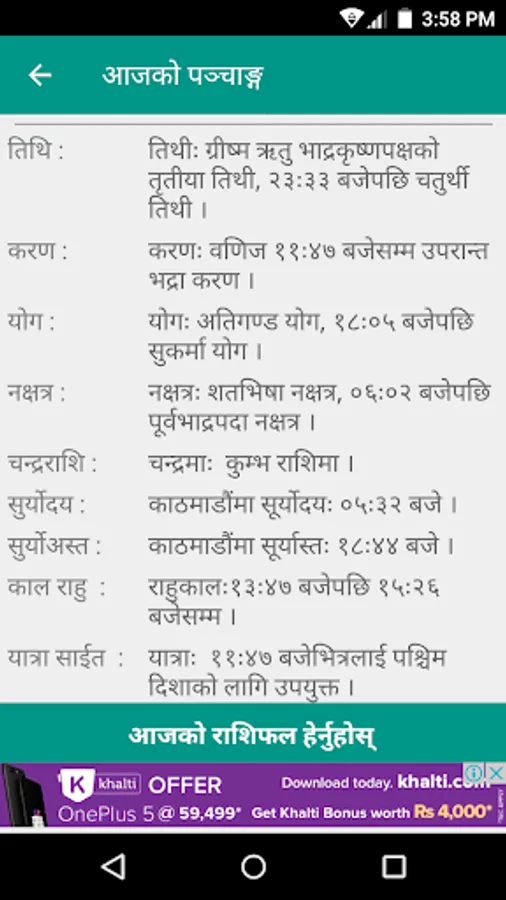 3:58 PM
आजको पञ्चाङ्ग
तिथि :
तिथीः ग्रीष्म ऋतु भाद्रकृष्णपक्षको
तृतीया तिथी, २३:३३ बजेपछि चतुर्थी
तिथी ।
करण :
करणः वणिज ११:४७ बजेसम्म उपरान्त
भद्रा करण ।
योग :
योगः अतिगण्ड योग, १८:०५ बजेपछि
सुकर्मा योग ।
नक्षत्र :
नक्षत्रः शतभिषा नक्षत्र, ०६:०२ बजेपछि
पूर्वभाद्रपदा नक्षत्र ।
चन्द्रराशि :
चन्द्रमाः कुम्भ राशिमा ।
सुर्योदय :
काठमाडौंमा सूर्योदयः ०५:३२ बजे ।
सुर्योअस्त :
काठमाडौंमा सूर्यास्तः १८:४४ बजे ।
काल राहु :
राहुकालः१३:४७ बजेपछि १५:२६
बजेसम्म ।
यात्रा साईत :
यात्राः ११:४७ बजेभित्रलाई पश्चिम
दिशाको लागि उपयुक्त ।
आजको राशिफल हेर्नुहोस्
K khalti OFFER
OnePlus 5 @ 59,499*
Download today. khalti.com
Get Khalti Bonus worth Rs 4,000*